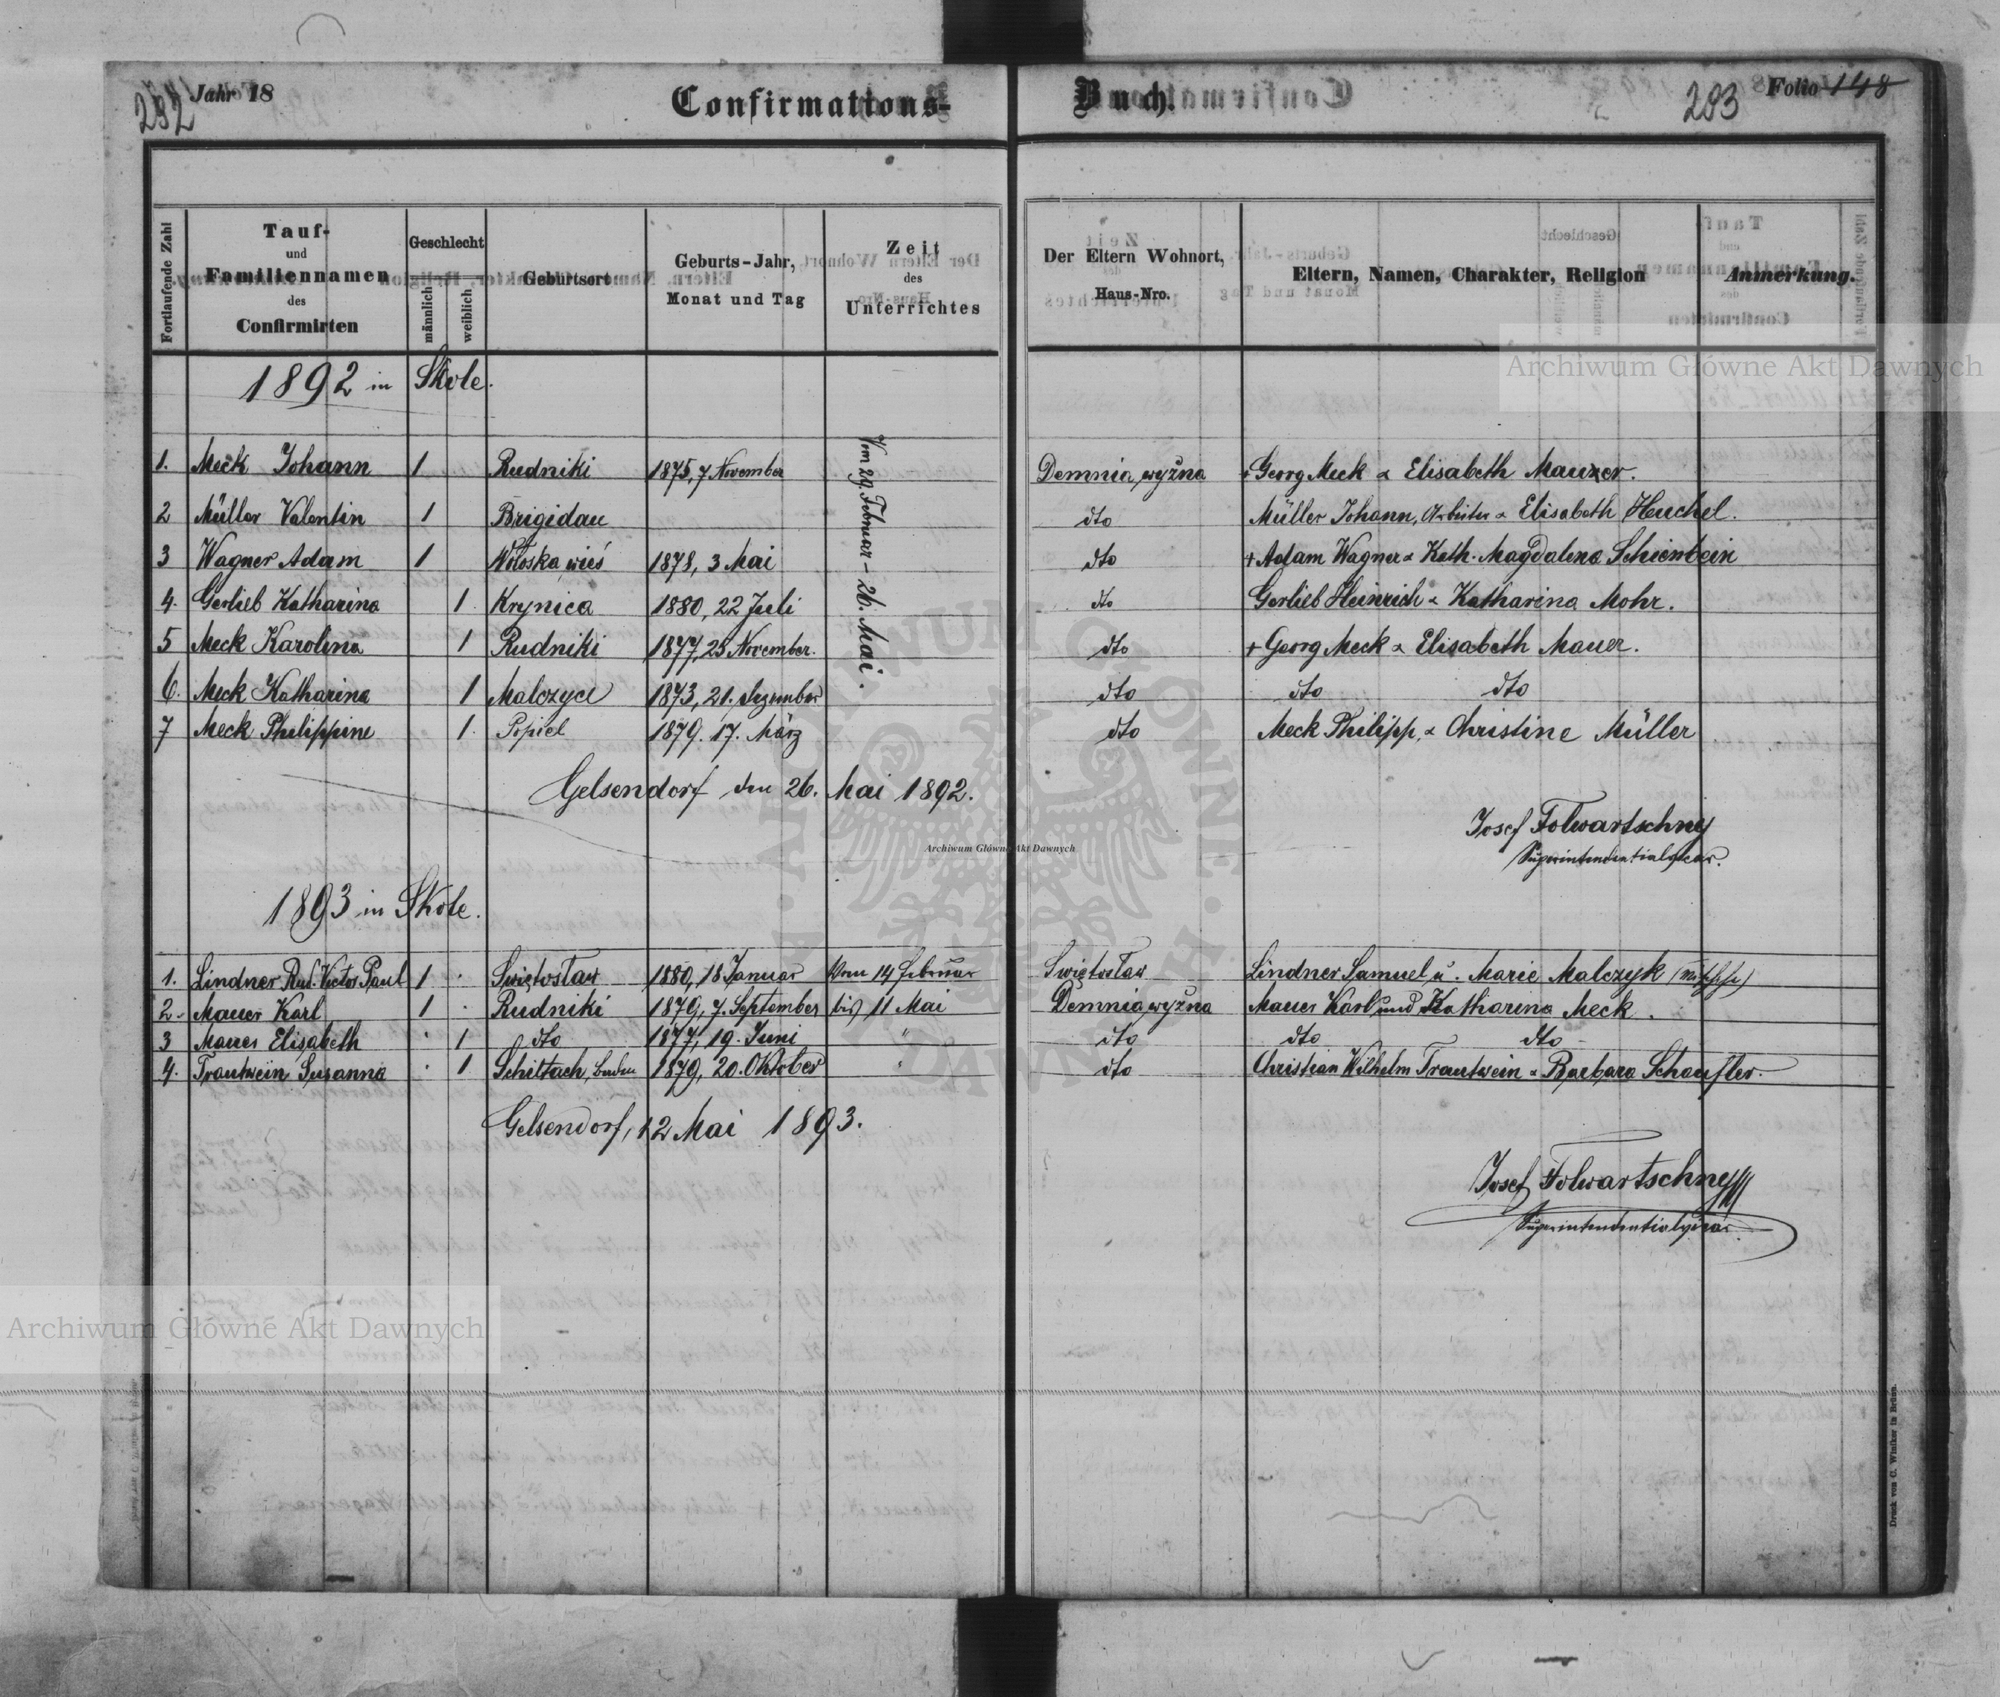 282 Jahr 18 Confirmations-
Buch. 283 Folio 148
Fortlaufende Zahl
Tauf-
und
Familiennamen
des
Confirmirten
Geschlecht
männlich
weiblich
Geburtsort
Geburts-Jahr,
Monat und Tag
Zeit
des
Unterrichtes
Der Eltern Wohnort,
Haus-Nro.
Eltern, Namen, Charakter, Religion
Anmerkung.
1892 in Skole.
Vom 29. Februar - 26. Mai.
1. Meck Johann 1 Rudniki 1875, 7 November Demnia wyżna + Georg Meck & Elisabeth Mauer.
2 Müller Valentin 1 Brigidau dto Müller Johann, Arbeiter & Elisabeth Heuchel.
3 Wagner Adam 1 Wołoska wieś 1878, 3 Mai dto + Adam Wagner & Kath. Magdalena Schienbein
4. Gerlieb Katharina 1 Krynica 1880, 22 Juli dto Gerlieb Heinrich & Katharina Mohr.
5 Meck Karolina 1 Rudniki 1877, 25 November. dto + Georg Meck & Elisabeth Mauer.
6. Meck Katharina 1 Malczyce 1873, 21. Dezember dto dto dto
7 Meck Philippine 1 Popiel 1879. 17. März dto Meck Philipp, & Christine Müller
Gelsendorf den 26. Mai 1892.
Josef Folwartschny
Superintendentialvicar.
1893 in Skole.
1. Lindner Rud. Victor Paul 1 Świętosław 1880, 18 Januar Vom 14 Februar Świętosław Lindner Samuel u. Marie Malczyk
2. Mauer Karl 1 Rudniki 1879, 7. September bis 11 Mai Demnia wyżna Mauer Karl und Katharina Meck.
3 Mauer Elisabeth 1 dto 1877, 19. Juni " dto dto dto
4. Trautwein Susanna 1 Schiltach, Baden 1879, 20. Oktober " dto Christian Wilhelm Trautwein & Barbara Schaufler.
Gelsendorf, 12 Mai 1893.
Josef Folwartschny
Superintendentialvicar.
Druck von C. Winiker in Brünn.
Archiwum Główne Akt Dawnych
Archiwum Główne Akt Dawnych
Archiwum Główne Akt Dawnych